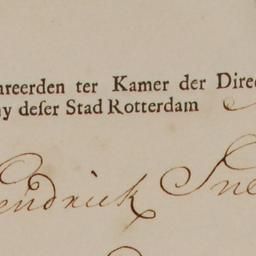 nreerden ter Kamer der Direc
y deſer Stad Rotterdam
endrick Sne